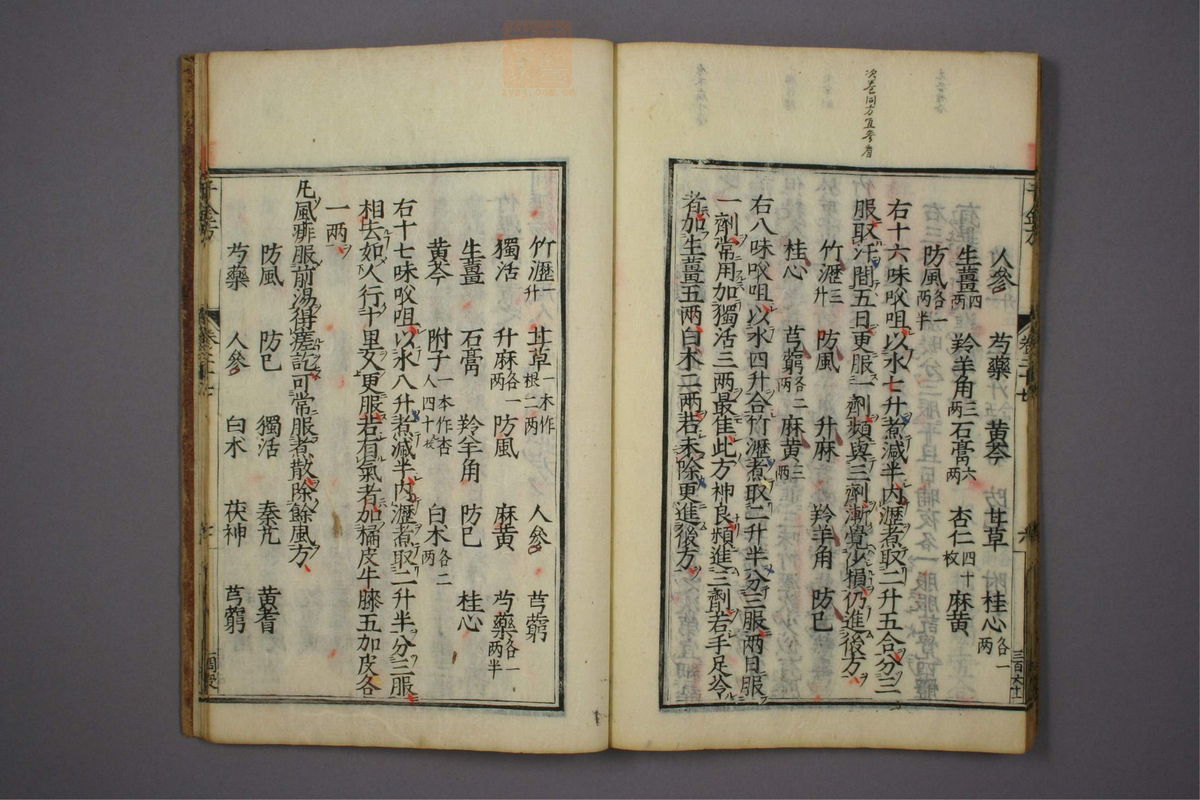 人參 芍藥 黄芩 甘草 桂心各一两
生薑四两 羚羊角三两 石膏六两 杏仁四十枚 麻黄
防風各一两半
右十六味㕮咀以水七升煮減半内瀝煮取二升五合分三
服取汗間五日更服一劑頻與三劑漸覺少損仍進後方
竹瀝三升 防風 升麻 羚羊角 防己
桂心 芎藭各二两 麻黄三两
右八味㕮咀以水四升合竹瀝煮取二升半分三服两日服
一劑常用加獨活三两最佳此方神良頻進三劑若手足冷
者加生薑五两白术二两若未除更進後方
竹瀝一升 甘草一本作葛根二两 人參 芎藭
獨活 升麻各一两 防風 麻黄 芍藥各一两半
生薑 石膏 羚羊角 防己 桂心
黄芩 附子一本作杏人四十枚 白术各二两
右十七味㕮咀以水八升煮減半内瀝煮取二升半分三服
相去如人行十里久更服若有氣者加橘皮牛膝五加皮各
一两
凡風痱服前湯得瘥訖可常服煮散除餘風方
防風 防己 獨活 秦艽 黄耆
芍藥 人參 白术 茯神 芎藭
千金方